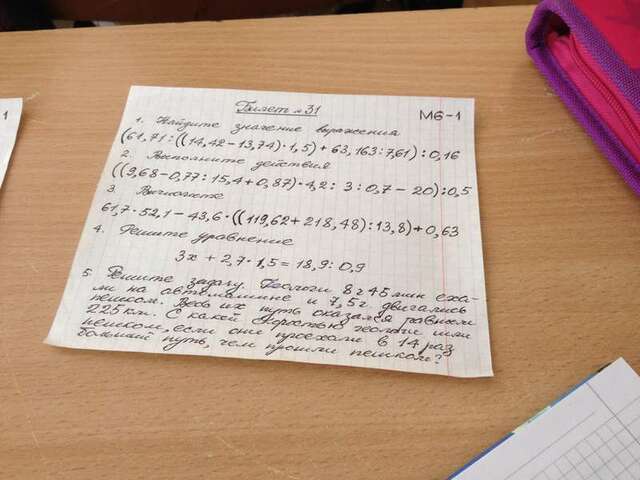 Билет №31
М6-1
1. Найдите значение выражения
(61,71:((14,42-13,74)·1,5)+63,163:7,61):0,16
2. Выполните действия
((9,68-0,77:15,4+0,87)·4,2:3:0,7-20):0,5
3. Вычислите
61,7·52,1-43,6·((119,62+218,48):13,8)+0,63
4. Решите уравнение
3x+2,7·1,5=18,9:0,9
5. Решите задачу. Геологи 8 г 45 мин еха-
ли на автомашине и 7,5 г двигались
пешком. Весь их путь оказался равным
225 км. С какой скоростью геологи шли
пешком, если они проехали в 14 раз
больший путь, чем прошли пешком?
1